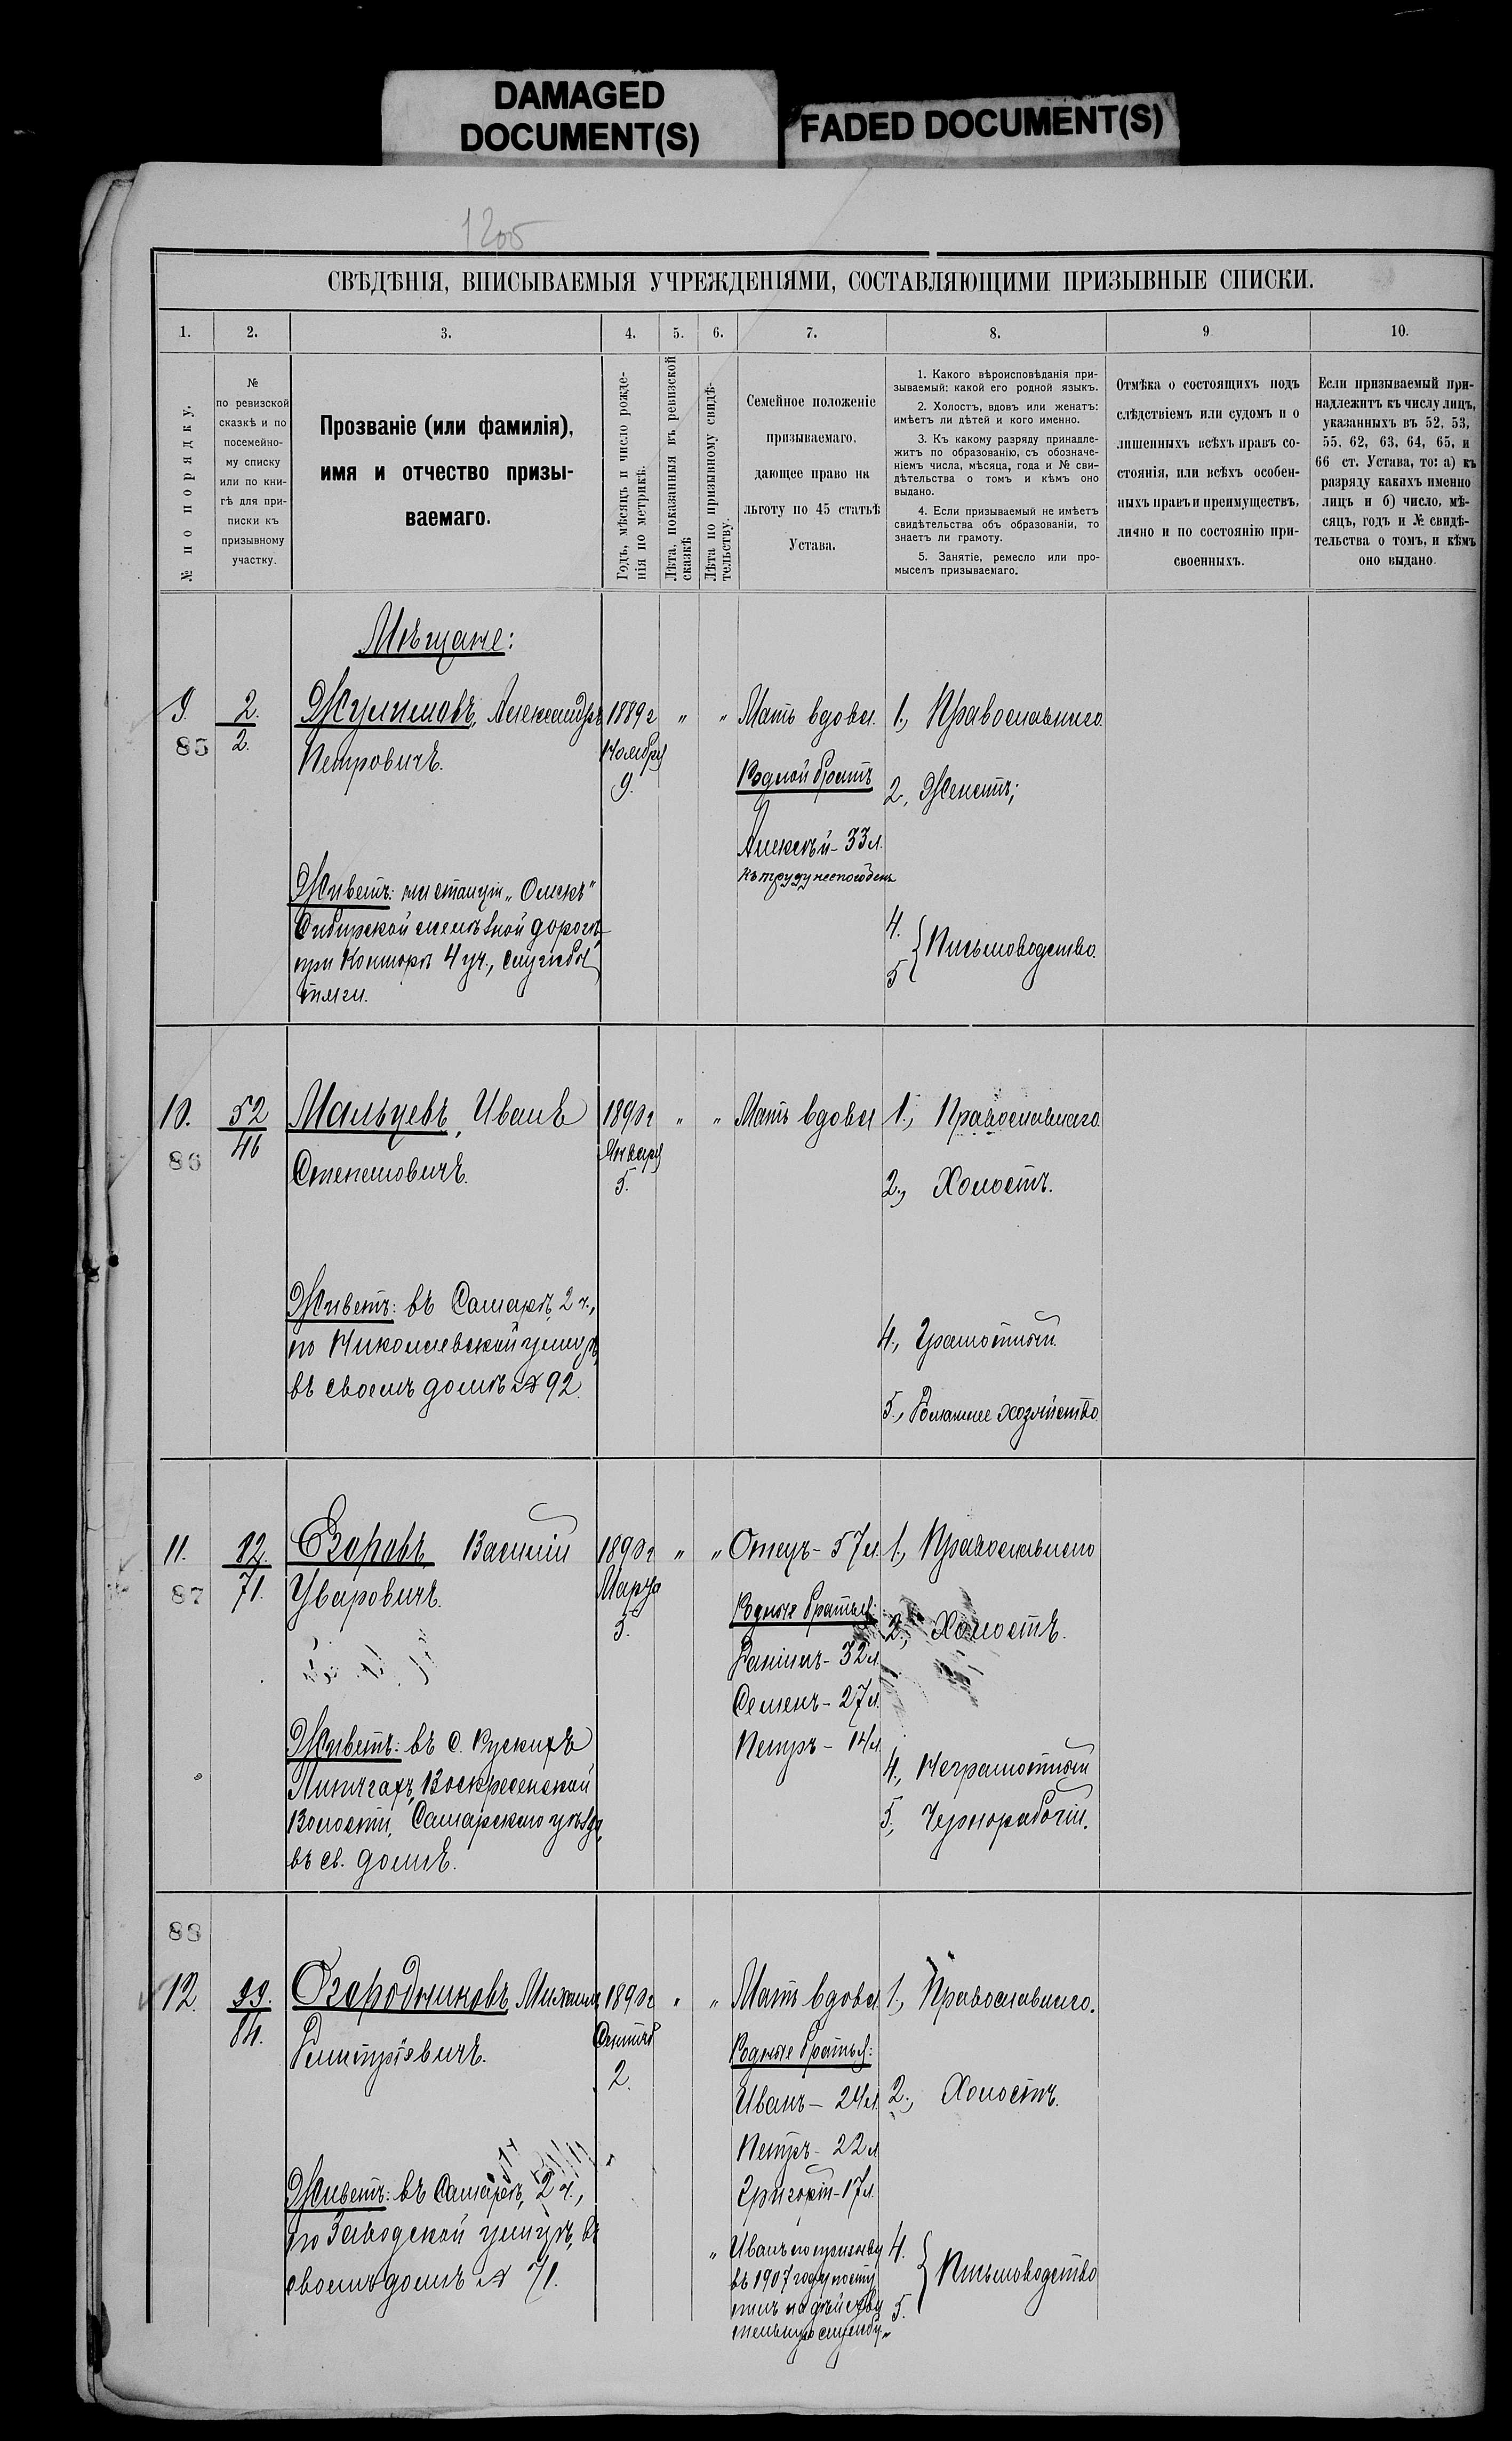 DAMAGED
DOCUMENT(S)
FADED DOCUMENT(S)
1205
СВѢДѢНІЯ, ВПИСЫВАЕМЫЯ УЧРЕЖДЕНІЯМИ, СОСТАВЛЯЮЩИМИ ПРИЗЫВНЫЕ СПИСКИ.
1.
2.
3.
4.
5.
6.
7.
8.
9
10.
№ по порядку.
№
по ревизской
сказкѣ и по
посемейно-
му списку
или по кни-
гѣ для при-
писки къ
призывному
участку.
Прозваніе (или фамилія),
имя и отчество призы-
ваемаго.
Годъ, мѣсяцъ и число рожде-
нія по метрикѣ.
Лѣта, показанныя въ ревизской
сказкѣ
Лѣта по призывному свидѣ-
тельству.
Семейное положеніе
призываемаго,
дающее право на
льготу по 45 статьѣ
Устава.
1. Какого вѣроисповѣданія при-
зываемый: какой его родной языкъ.
2. Холостъ, вдовъ или женатъ:
имѣетъ ли дѣтей и кого именно.
3. Къ какому разряду принадле-
житъ по образованію, съ обозначе-
ніемъ числа, мѣсяца, года и № сви-
дѣтельства о томъ и кѣмъ оно
выдано.
4. Если призываемый не имѣетъ
свидѣтельства объ образованіи, то
знаетъ ли грамоту.
5. Занятіе, ремесло или про-
мыселъ призываемаго.
Отмѣка о состоящихъ подъ
слѣдствіемъ или судомъ и о
лишенныхъ всѣхъ правъ со-
стоянія, или всѣхъ особен-
ныхъ правъ и преимуществъ,
лично и по состоянію при-
своенныхъ.
Если призываемый при-
надлежитъ къ числу лицъ,
указанныхъ въ 52, 53,
55, 62, 63, 64, 65, и
66 ст. Устава, то: а) къ
разряду какихъ именно
лицъ и б) число, мѣ-
сяцъ, годъ и № свидѣ-
тельства о томъ, и кѣмъ
оно выдано.
Мѣщане:
9.
85
2.
2.
Александръ
Петровичъ.
Живетъ: на станціи „Омскъ"
Сибирской желѣзной дороги,
при Конторѣ 4 уч., службы
тяги.
1889 г
Ноября
9.
"
"
Мать вдова.
Родной братъ
Алексѣй - 33 л.
къ труду неспособенъ
1., Православнаго.
2., Женатъ;
4.
5
Письмоводство.
10.
86
52
46
Мальцевъ, Иванъ
Степановичъ.
Живетъ: въ Самарѣ, 2 ч.,
по Николаевской улицѣ,
въ своемъ домѣ № 92.
1890 г
Января
5.
"
"
Мать вдова
1., Православнаго.
2., Холостъ.
4., Грамотный.
5., Домашнее хозяйство
11.
87
82.
71.
Василій
Уваровичъ.
Живетъ: въ с. Рускихъ
Липягахъ, Воскресенской
Волости, Самарскаго уѣзда,
въ св. домѣ.
1890 г
Марта
5.
"
"
Отецъ - 57 л.
Родные братья:
Даніилъ - 32 л.
Семенъ - 27 л.
Петръ - 14 л
1., Православнаго
2., Холостъ.
4., Неграмотный
5., Чернорабочій.
88
12.
99.
84.
Огородниковъ, Михаилъ
Димитріевичъ.
Живетъ: въ Самарѣ, 2 ч.,
по Заводской улицѣ, въ
своемъ домѣ № 71.
1890 г
Сентяб
2.
"
"
Мать вдова
Родные братья:
Иванъ - 24 л.
Петръ - 22 л
Григорій - 17 л.
" Иванъ по призыву
въ 1907 году посту
пилъ на дѣйстви
тельную службу„
1., Православнаго.
2., Холостъ.
4.
5.
Письмоводство